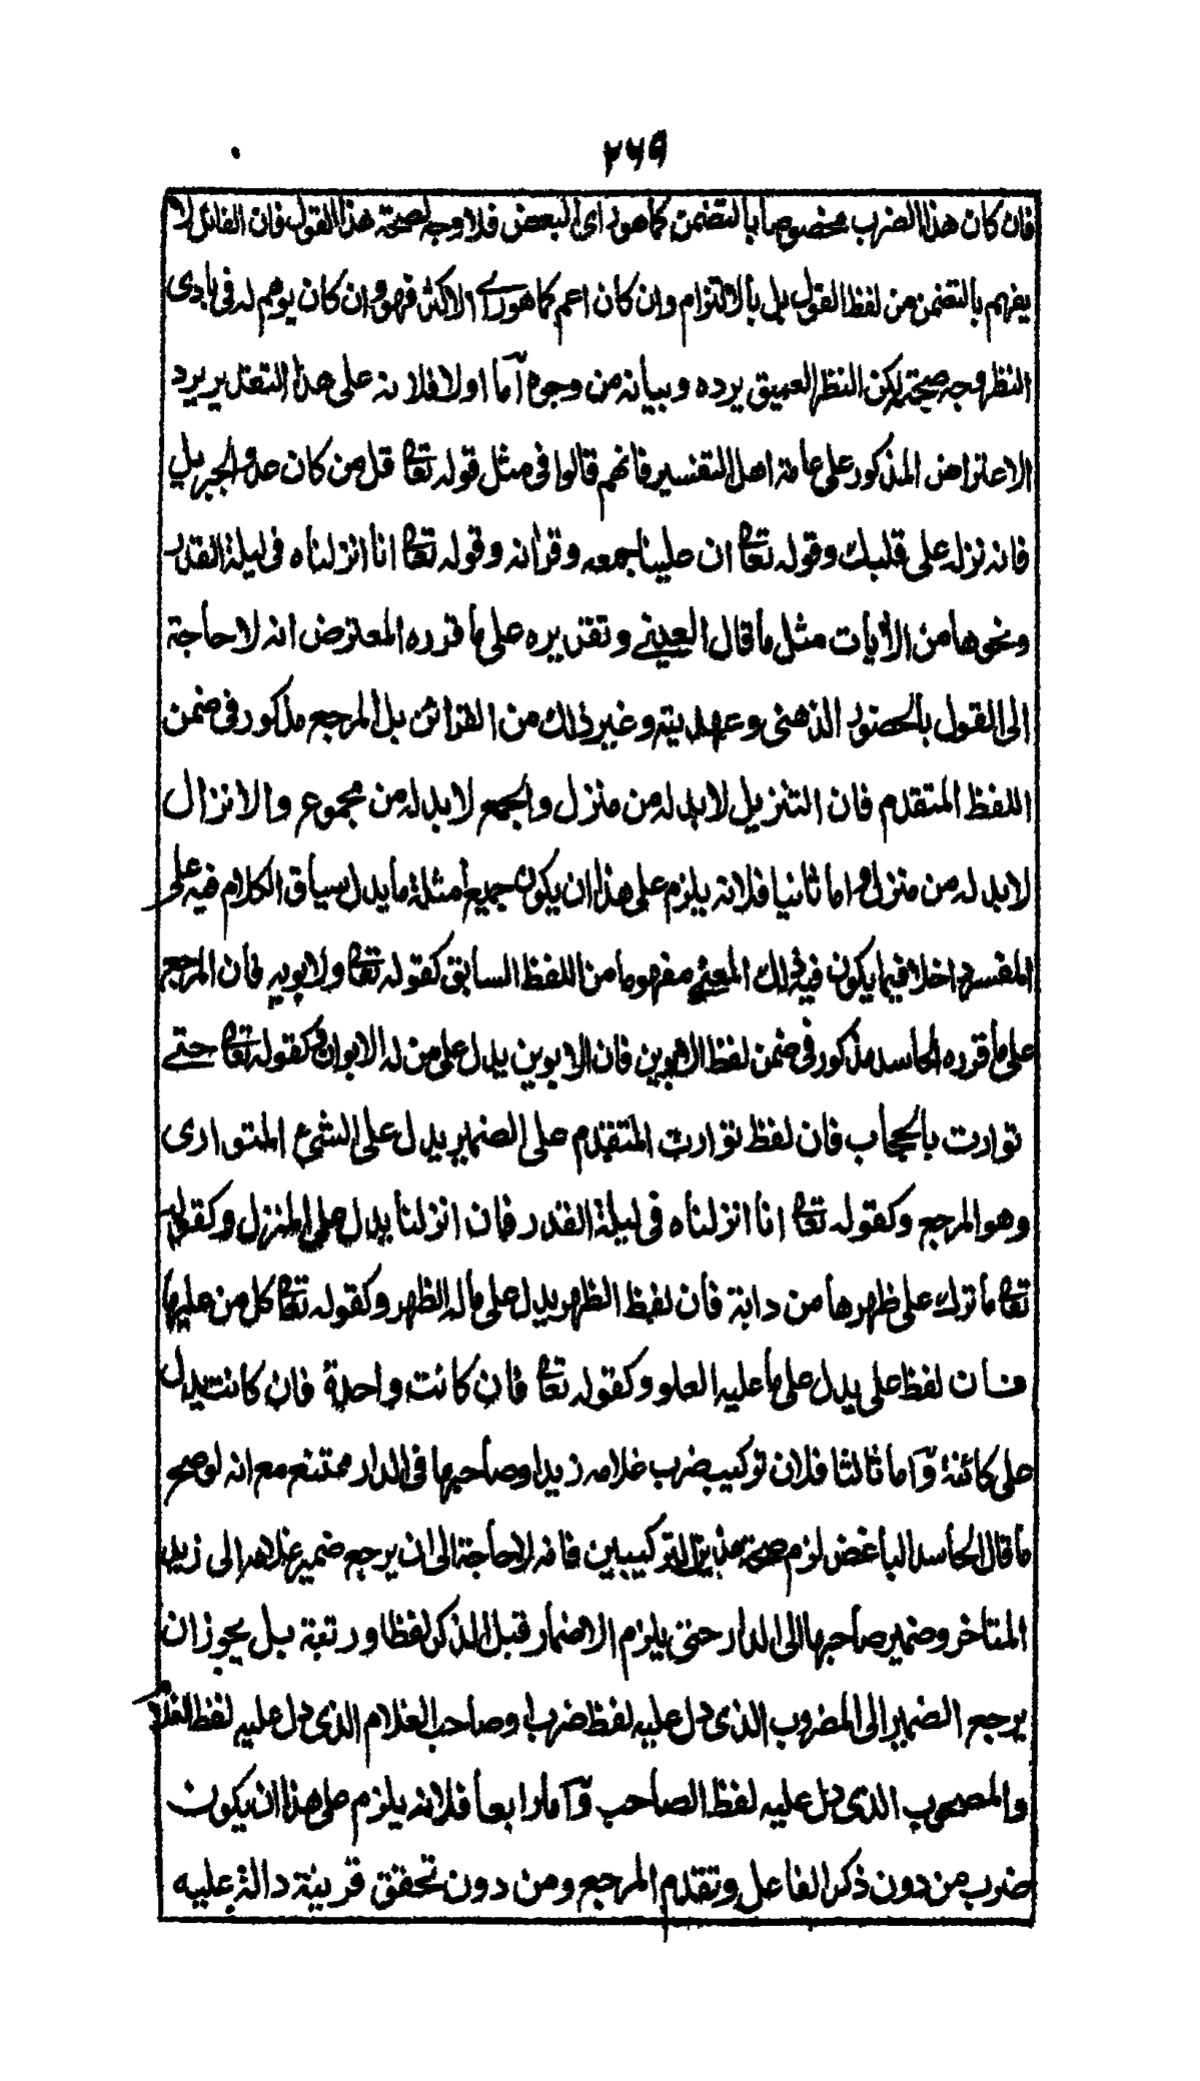 ۲۶۹
فان كان هذا الضرب مخصوصا بالتضمن كما هو راى البعض فلا وجه لصحة هذا القول فان القائل لا
يفهم بالتضمن من لفظ القول بل بالالتزام وان كان اعم كما هو راے الاكثر فهو وان كان يوهم له فى بادى
النظر وجه صحة لكن النظر العميق يرده وبيانه من وجوه آما اولا فلانه على هذا التقدير يرد
الاعتراض المذكور على عامة اهل التفسير فانهم قالوا فى مثل قوله تعالى قل من كان عدوا لجبريل
فانه نزله على قلبك وقوله تعالى ان علينا جمعه وقرانه وقوله تعالى انا انزلناه فى ليلة القدر
ونحوها من الايات مثل ما قال العينے وتقديره على ما قرره المعترض انه لا حاجة
الى القول بالحضور الذهنى وعهديته وغير ذلك من القرائن بل المرجع مذكور فى ضمن
اللفظ المتقدم فان التنزيل لا بد له من منزل والجمع لا بد له من مجموع والانزال
لا بد له من منزل واما ثانيا فلانه يلزم على هذا ان يكون جميع امثلة ما يدل سياق الكلام فيه على
المفسر داخلا فيما يكون فيه ذلك المعنے مفهوما من اللفظ السابق كقوله تعالى ولابويه فان المرجع
على ما قرره الحاسد مذكور فى ضمن لفظ الابوين فان الابوين يدل على من له الابوان وكقوله تعالى حتے
توارت بالحجاب فان لفظ توارت المتقدم على الضمير يدل على الشئ المتوارى
وهو المرجع وكقوله تعالى انا انزلناه فى ليلة القدر فان انزلنا يدل على المنزل وكقوله
تعالى ما ترك على ظهرها من دابة فان لفظ الظهر يدل على ماله الظهر وكقوله تعالى كل من عليها
فان لفظ على يدل على ما عليه العلو وكقوله تعالى فان كانت واحدة فان كانت يدل
على كائنة وآما ثالثا فلان تركيب ضرب غلامه زيدا وصاحبها فى الدار ممتنع مع انه لو صح
ما قال الحاسد الباغض لزم صحة هذين التركيبين فانه لا حاجة الى ان يرجع ضمير غلامه الى زيد
المتاخر وضمير صاحبها الى الدار حتى يلزم الاضمار قبل الذكر لفظا ورتبة بل يجوز ان
يرجع الضمير الى المضروب الذى دل عليه لفظ ضرب او صاحب الغلام الذى دل عليه لفظ الغلام
والمصحوب الذى دل عليه لفظ الصاحب وآما رابعا فلانه يلزم على هذا ان يكون
ضرب من دون ذكر الفاعل وتقدم المرجع ومن دون تحقق قرينة دالة عليه